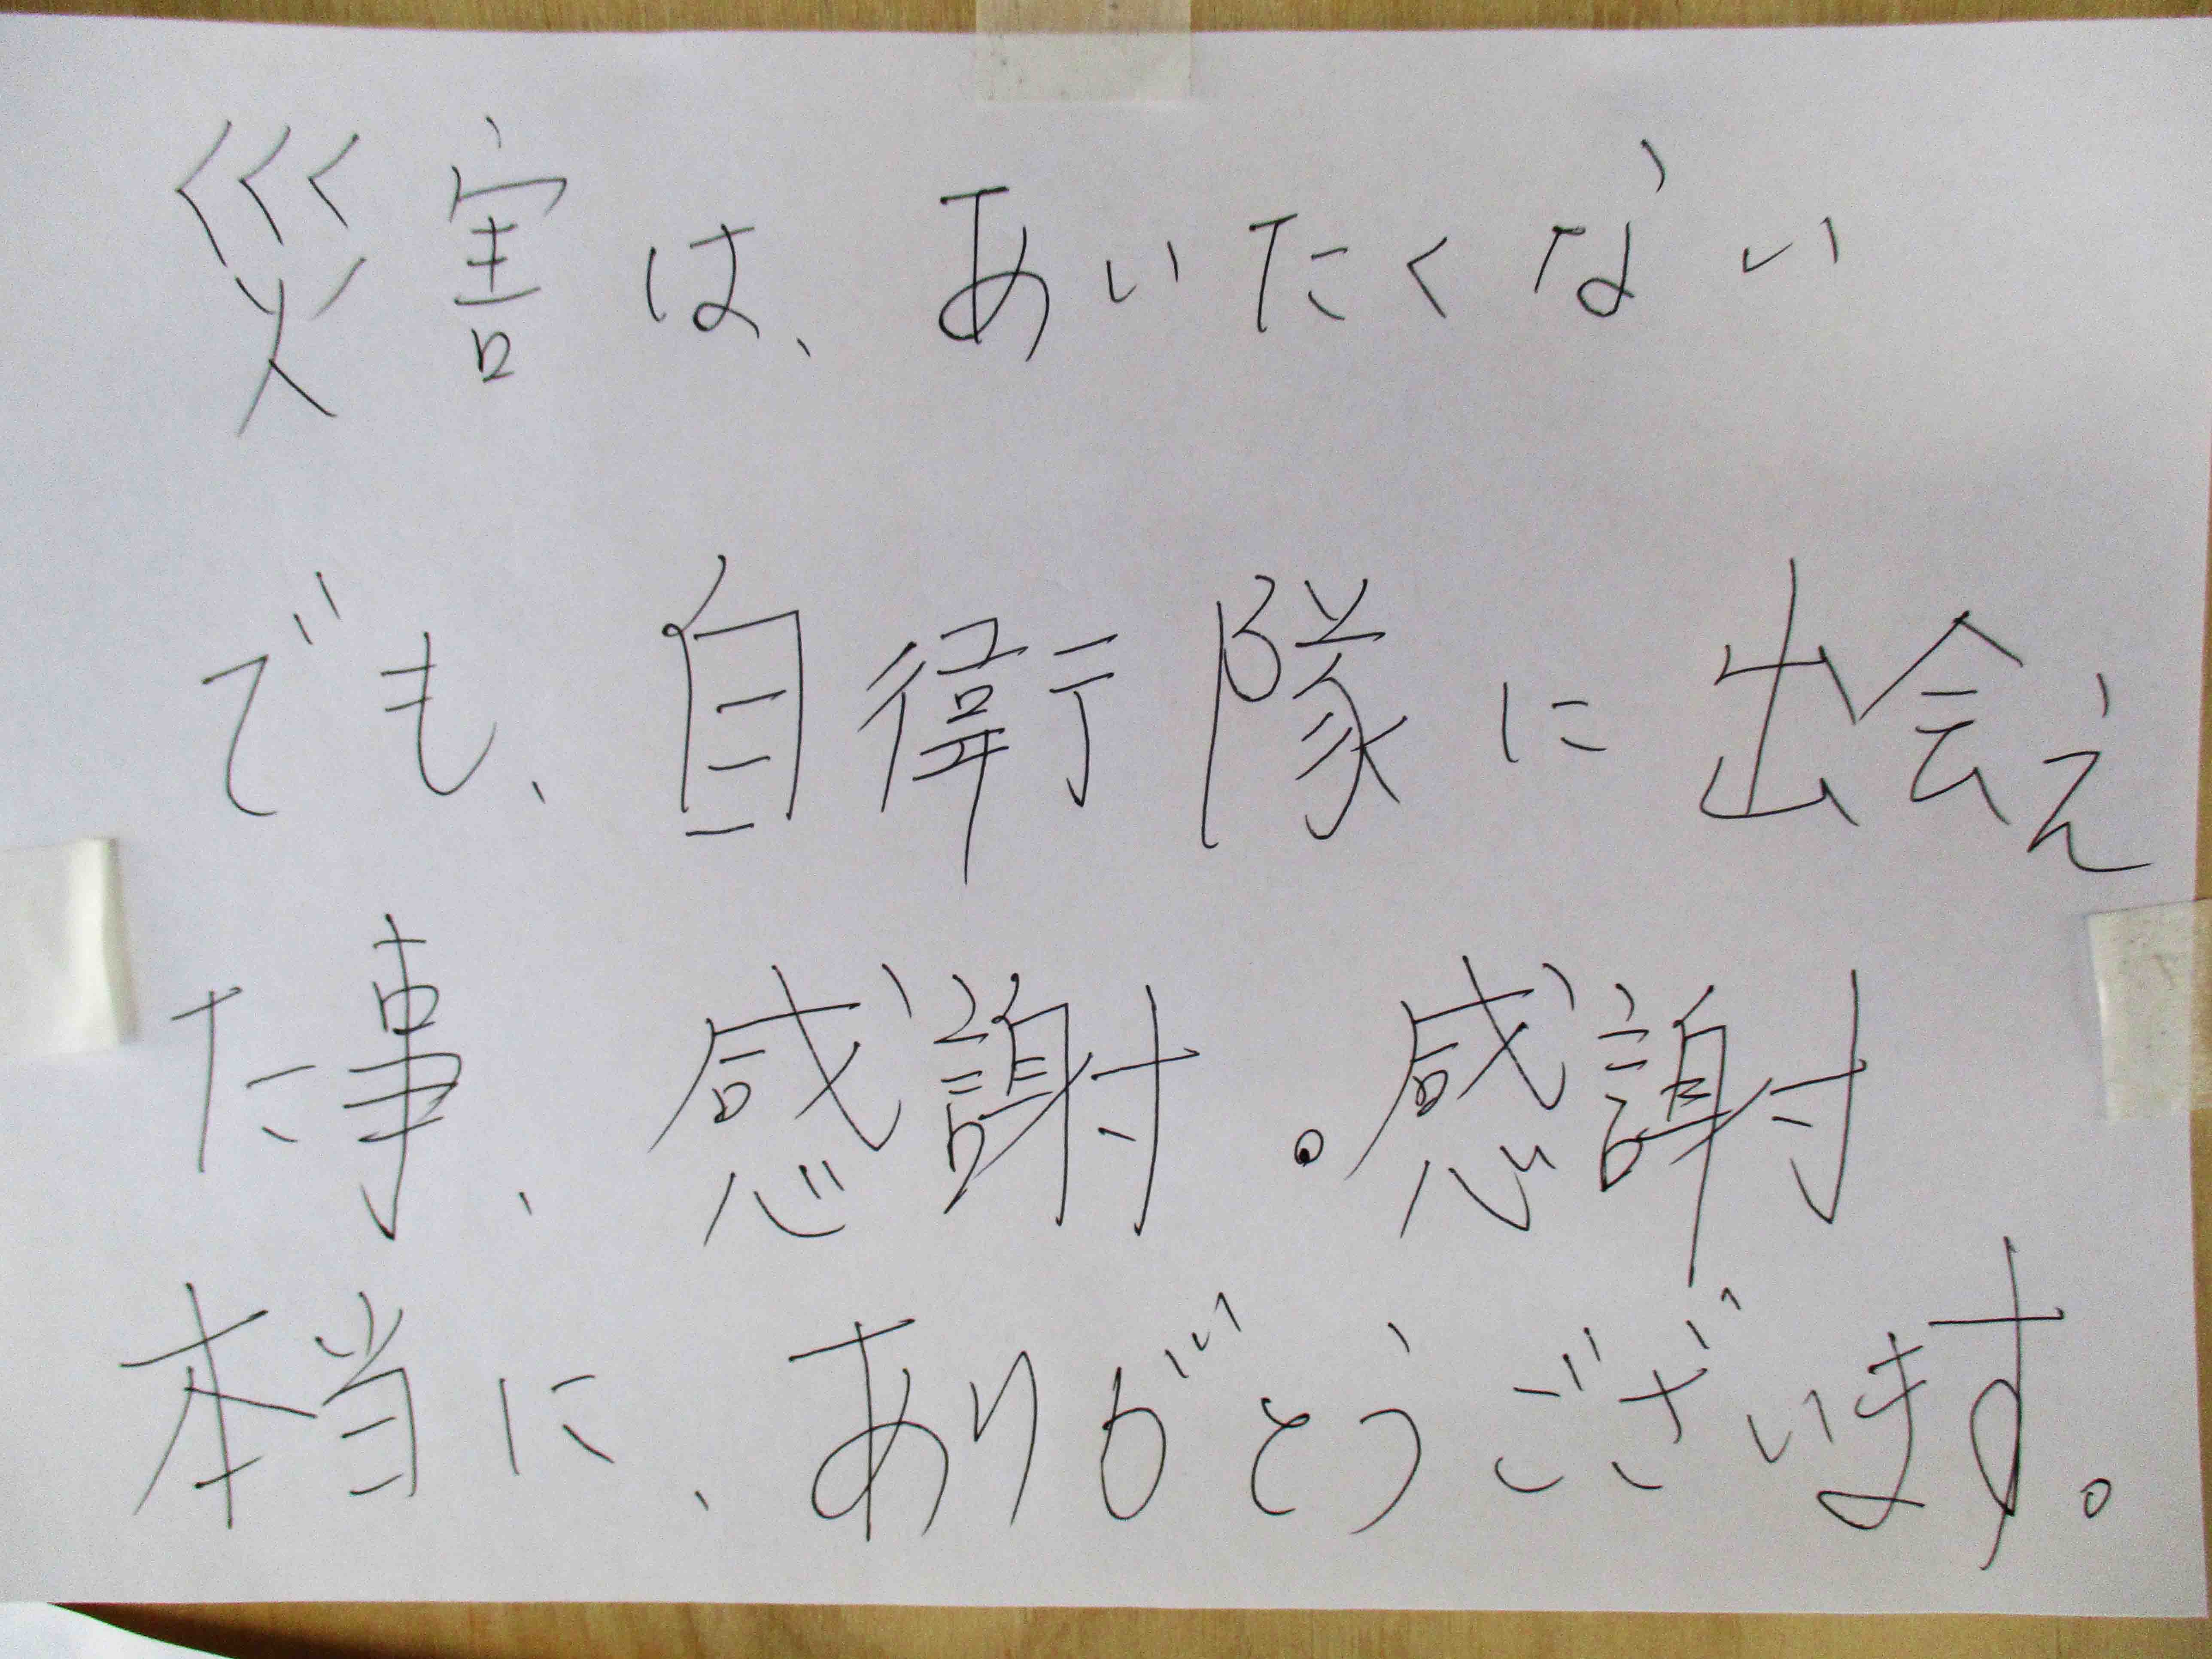 災害は、あいたくない
でも、自衛隊に出会え
た事、感謝。感謝
本当に、ありがとうございます。